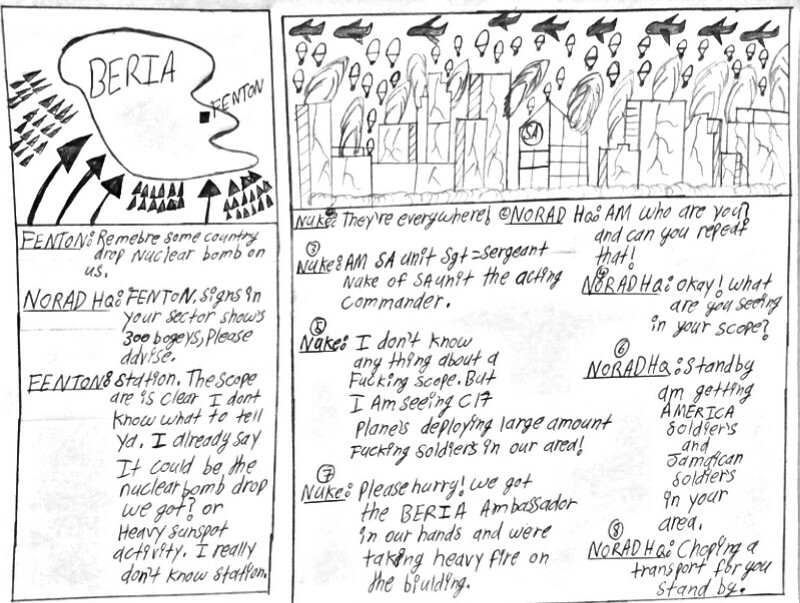 BERIA
FENTON
FENTON: Remebre some country
drop Nuclear bomb on
us.
NORAD HQ: FENTON. Signs in
your sector shows
300 bogeys, Please
advise.
FENTON: Station. The scope
are is clear I dont
know what to tell
ya. I already say
It could be the
nuclear bomb drop
we got? or
Heavy sunspot
activity. I really
don't know station.
SA
Nuke: They're everywhere!
② NORAD HQ: AM who are you?
and can you repeat
that!
③
Nuke: AM SA unit Sgt=sergeant
Nuke of SA unit the acting
commander.
④
NORAD HQ: Okay! what
are you seeing
in your scope?
⑤
Nuke: I don't know
any thing about a
Fucking scope. But
I Am seeing C17
Planes deploying large amount
Fucking soldiers in our area!
⑥
NORAD HQ: Standby
am getting
AMERICA
Soldiers
and
Jamaican
soldiers
in your
area.
⑦
Nuke: Please hurry! we got
the BERIA Ambassador
in our hands and were
taking heavy fire on
the biulding.
⑧
NORAD HQ: Choping a
transport for you
stand by.